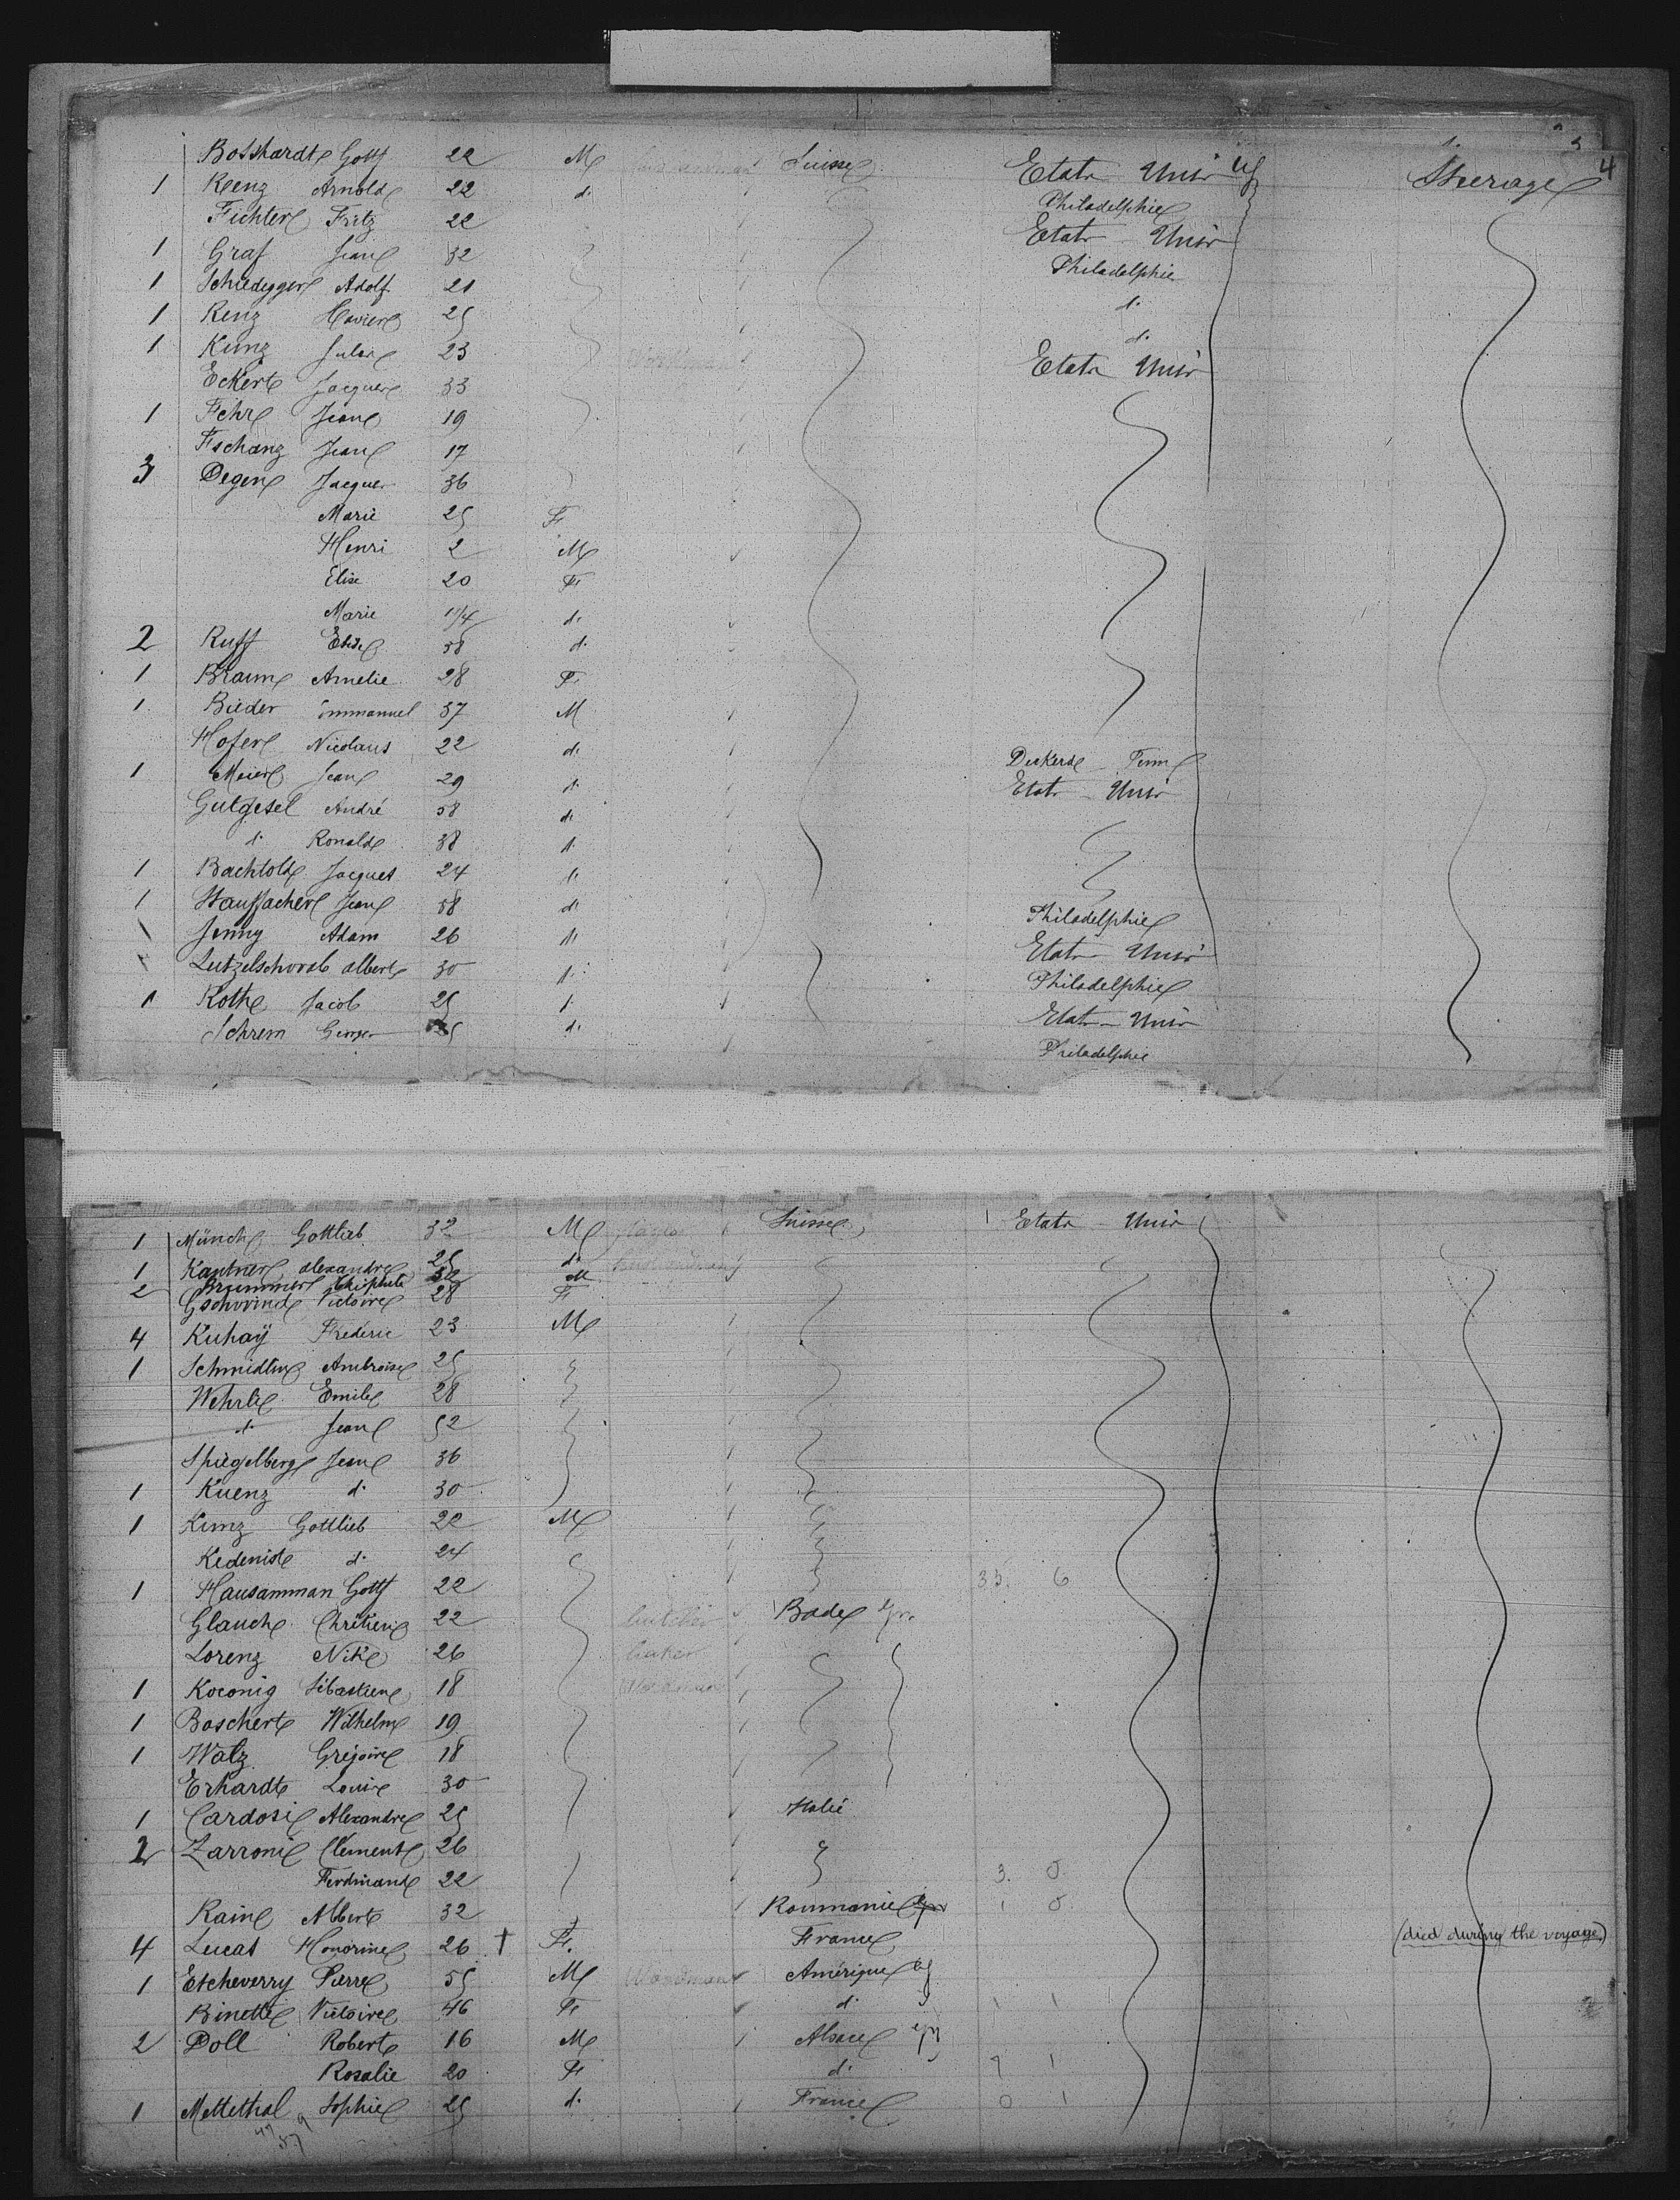 4
Bosshardt Gottf 22 M Suisse Etats Unis Steerage
1 Renz Arnold 22 d. Philadelphie
Fichter Fritz 22 Etats Unis
1 Graf Jean 32 Philadelphie
1 Scheidegger Adolf 21 d.
1 Renz Xavier 25 d.
1 Kunz Jules 23 Etats Unis
Eckert Jacques 33
1 Fehr Jean 19
Fschanz Jean 17
3 Degen Jacques 36
Marie 25 F.
Henri 2 M
Elise 20 F.
Marie 11/4 d.
2 Ruff 58 d.
1 Braun Amelie 28 F.
1 Bieder Emmanuel 37 M
Hofer Nicolaus 22 d. Tenn
1 Meier Jean 29 d. Etats Unis
Gutgesel André 58 d.
d. Ronald 38 d.
1 Bachtold Jacques 24 d.
1 Stauffacher Jean 58 d. Philadelphie
1 Jenny Adam 26 d. Etats Unis
Lutzelschwab Albert 30 d. Philadelphie
1 Roth Jacob 25 d. Etats Unis
Schrem Georges 25 d. Philadelphie
1 Münch Gottlieb 32 M Suisse Etats Unis
1 Kantner Alexandre 25 d.
2 Brummer 32 M
Gschwind Victoire 28 F.
4 Kuhaÿ Frédéric 23 M
1 Schmidlin Ambroise 25
Wehrli Emile 28
d. Jean 52
Spiegelberg Jean 36
1 Kuenz d. 30
1 Kunz Gottlieb 22 M
Kedenist d. 24
1 Hausamman Gottf 22 33. 6
Glauch Chrétien 22 butcher Bade
Lorenz Nik 26 baker
1 Koconig Sébastien 18
1 Boschert Wilhelm 19
1 Walz Grégoire 18
Erhardt Louis 30
1 Cardosi Alexandre 25 Italie
2 Zarroni Clement 26
Ferdinand 22 3. 0
Rain Albert 32 Roumanie 1 0
4 Lucas Honorine 26 † F. France (died during the voyage)
1 Etcheverry Pierre 55 M Amérique
Binette Victoire 46 F. d. 1 1
2 Doll Robert 16 M Alsace
Rosalie 20 F. d.
1 Mettethal Sophie 25 d. France 0 1